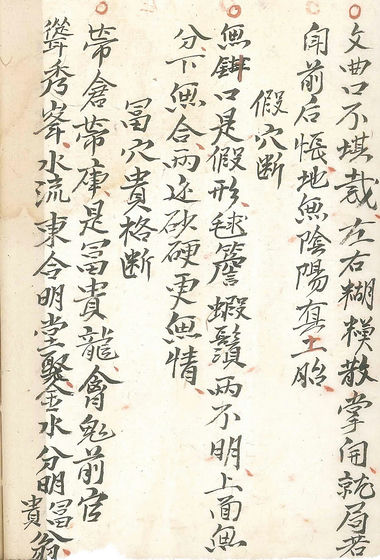 文曲口不堪裁左右糊模散掌開就局若
前后悵地無陰陽真土胎
假穴断
無鉗口是假形毬簷蝦鬚两不明上面無
分下無合两边砂硬更無情
冨穴貴格断
帶倉帶庫是冨貴龍鬼前官
聳秀峯水流東合明堂聚金水分明冨貴翁